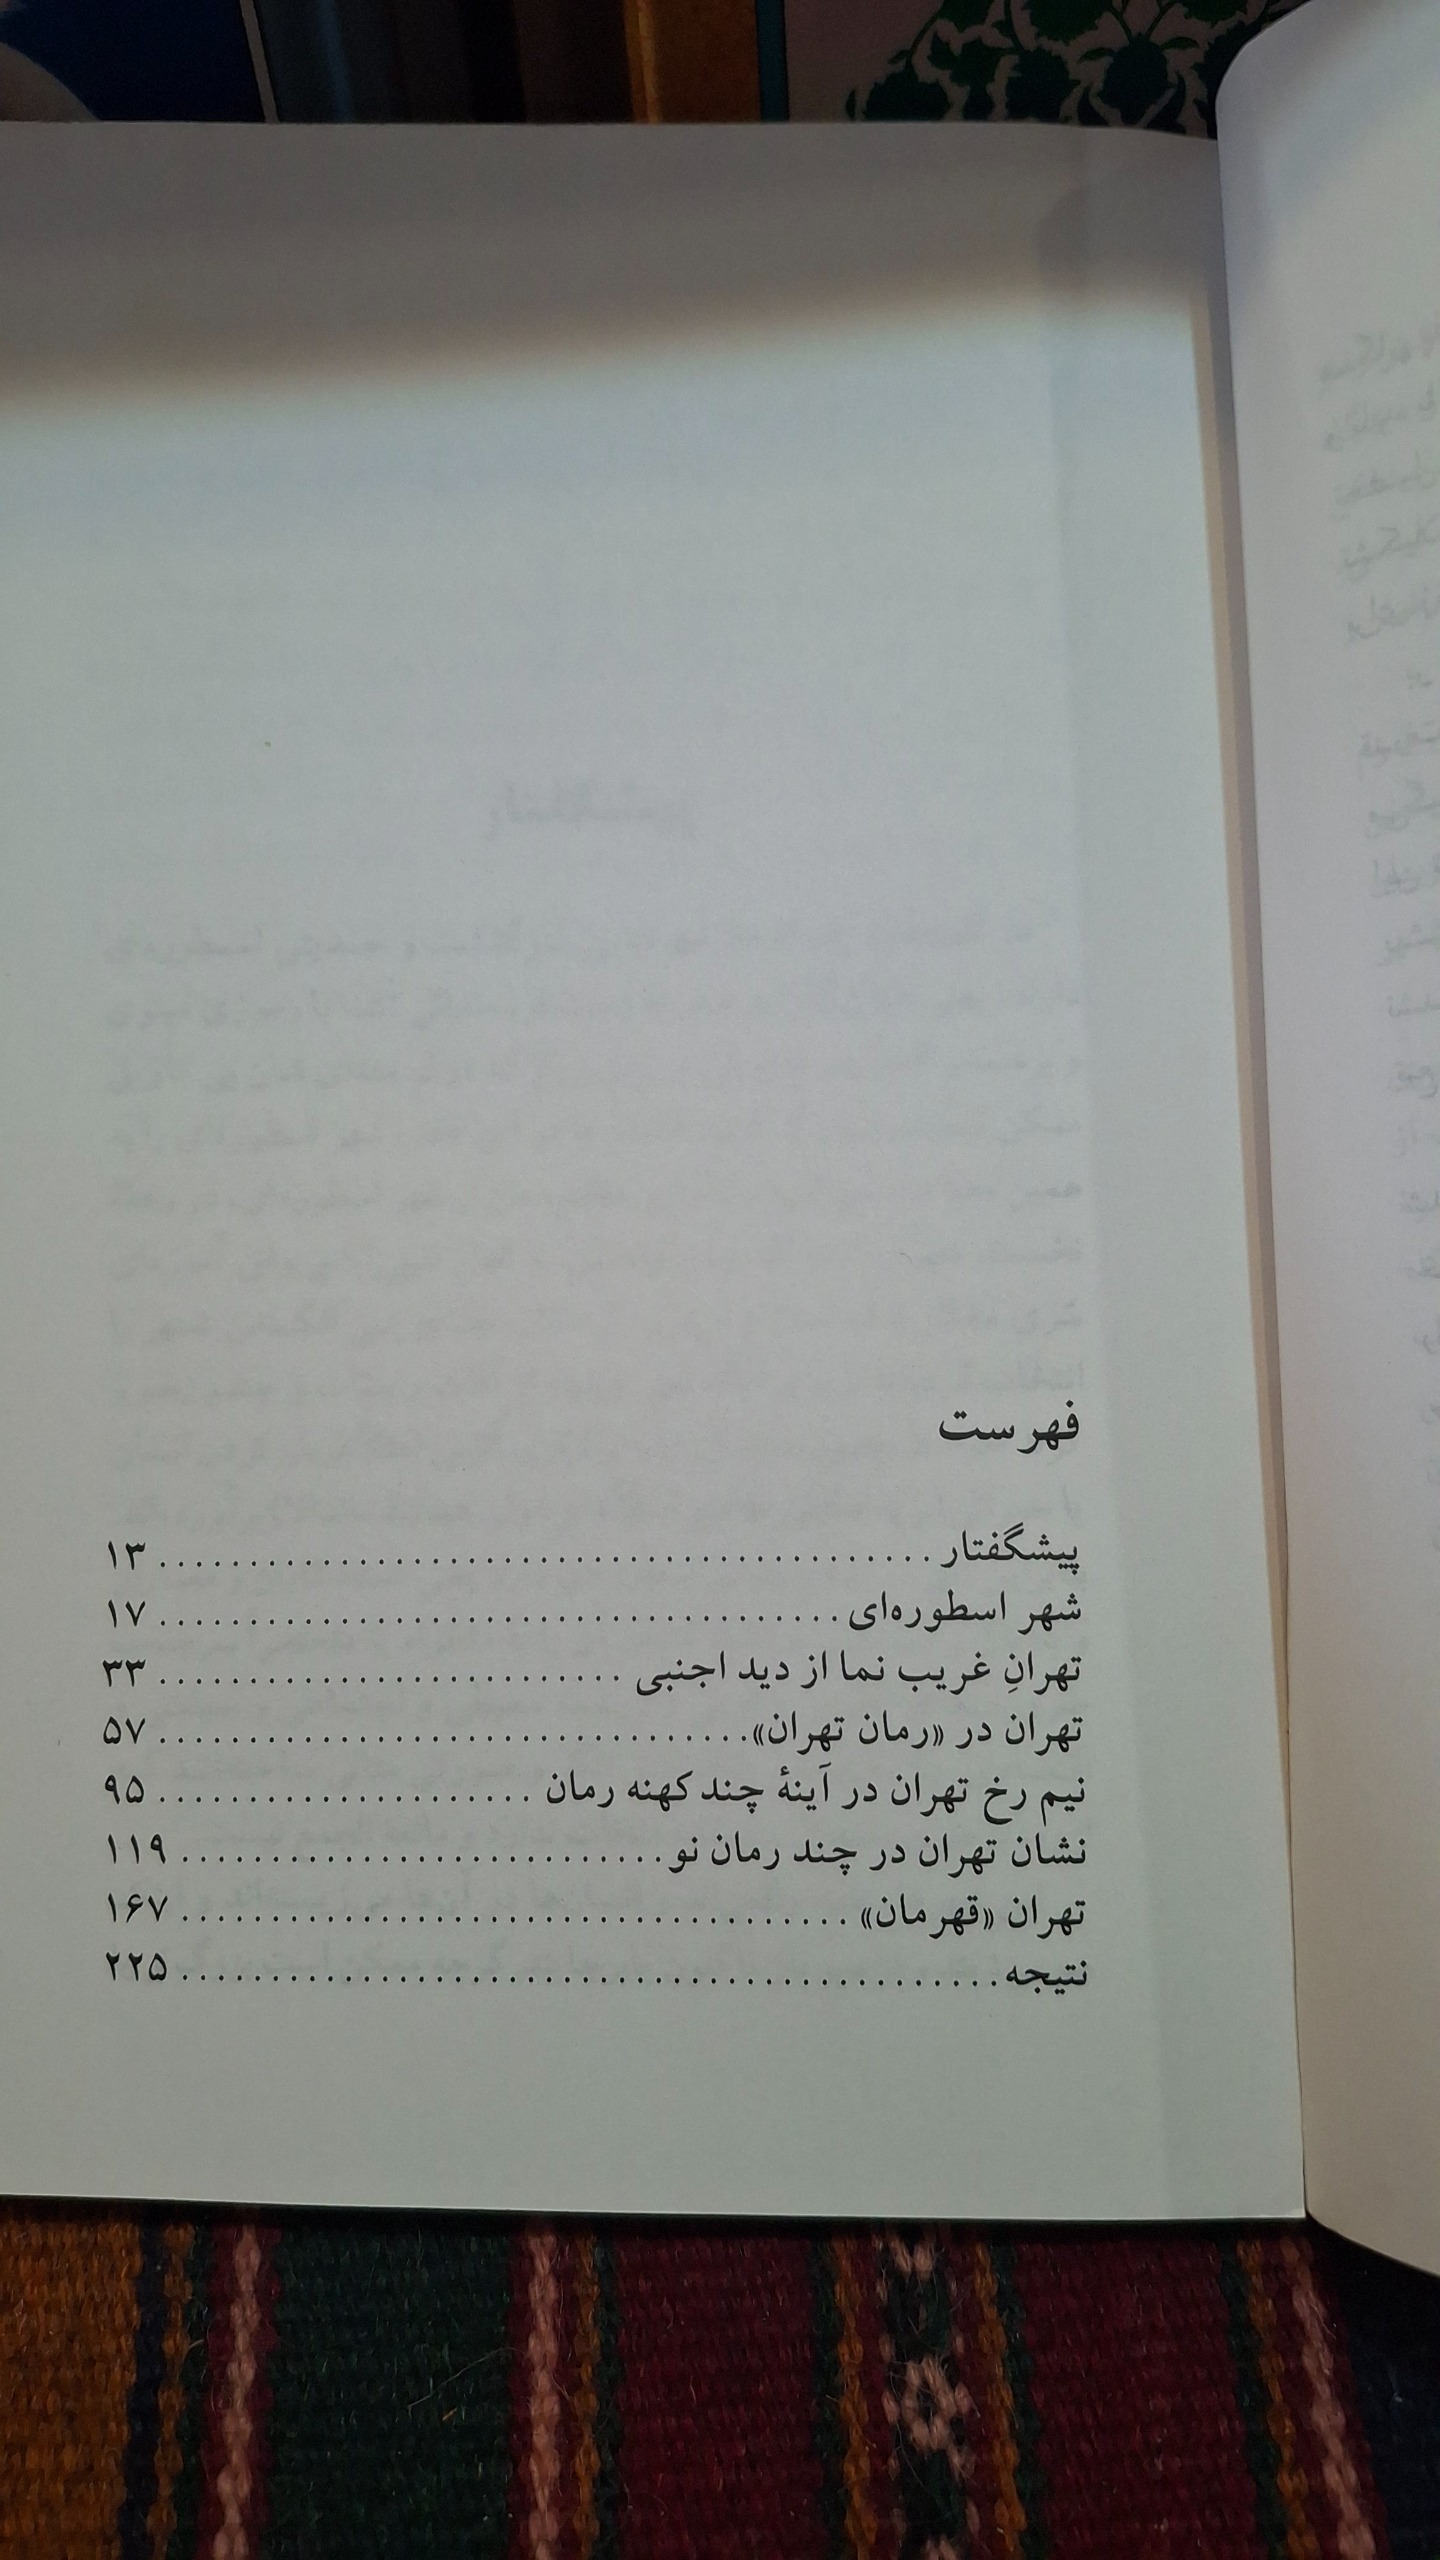 فهرست
پیشگفتار ............................................ ۱۳
شهر اسطوره‌ای ...................................... ۱۷
تهرانِ غریب نما از دید اجنبی .......................... ۳۳
تهران در «رمان تهران» ................................. ۵۷
نیم رخ تهران در آینهٔ چند کهنه رمان ..................... ۹۵
نشان تهران در چند رمان نو ........................... ۱۱۹
تهران «قهرمان» ...................................... ۱۶۷
نتیجه .............................................. ۲۲۵